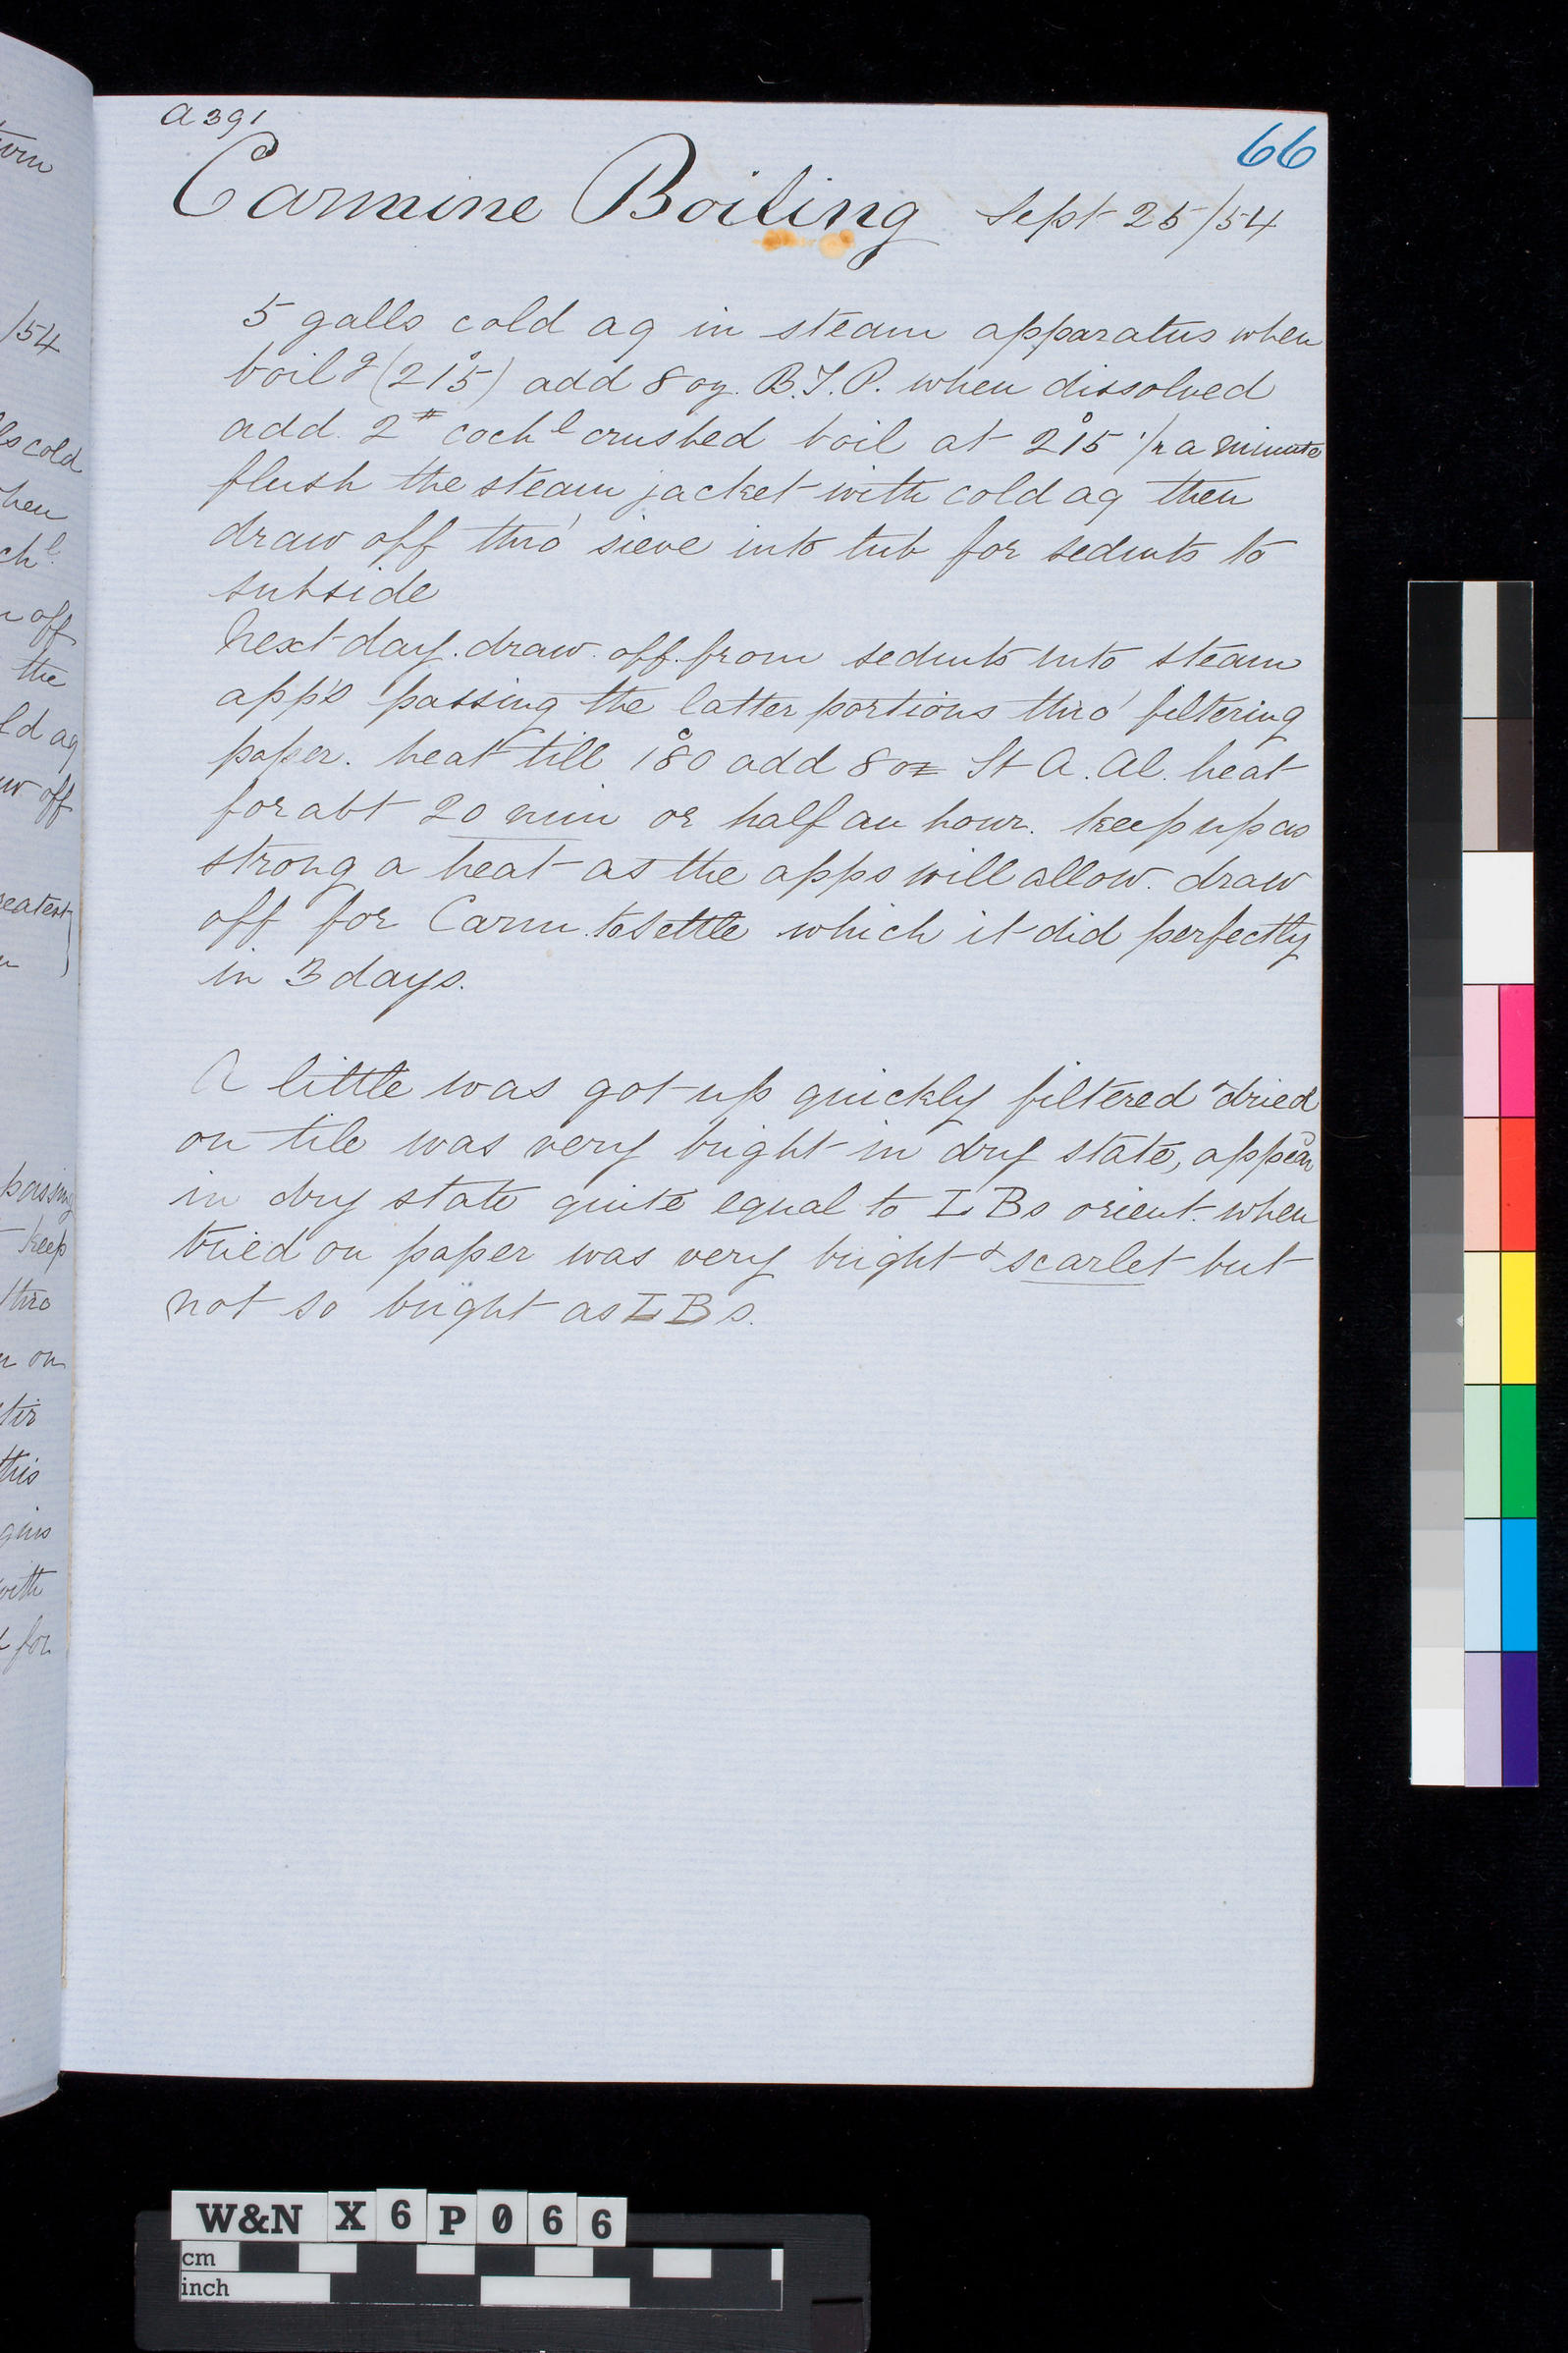 a 391
66
Carmine Boiling Sept 25/54
5 galls cold aq in steam apparatus when
boilg (21°5) add 8 oz. B.T.P. when dissolved
add. 2# cochl crushed boil at 21°5 1/2 a minute
flush the steam jacket with cold aq then
draw off thro' sieve into tub for sedmts to
subside
Next day. draw off from sedmts into steam
apps passing the latter portions thro' filtering
paper. heat till 18°0 add 8 oz St A. Al. heat
for abt 20 min or half an hour. keep up as
strong a heat as the apps will allow. draw
off for Carm. to settle which it did perfectly
in 3 days.
A little was got up quickly filtered & dried
on tile was very bright in dry state, appear
in dry state quite equal to LBs orient. when
tried on paper was very bright & scarlet but
not so bright as LBs.
/54
ls cold
hen
chl.
off
the
ld aq
w off
reatest
passing
keep
thro
on
stir
this
gins
with
for
W&N X6P066
cm
inch